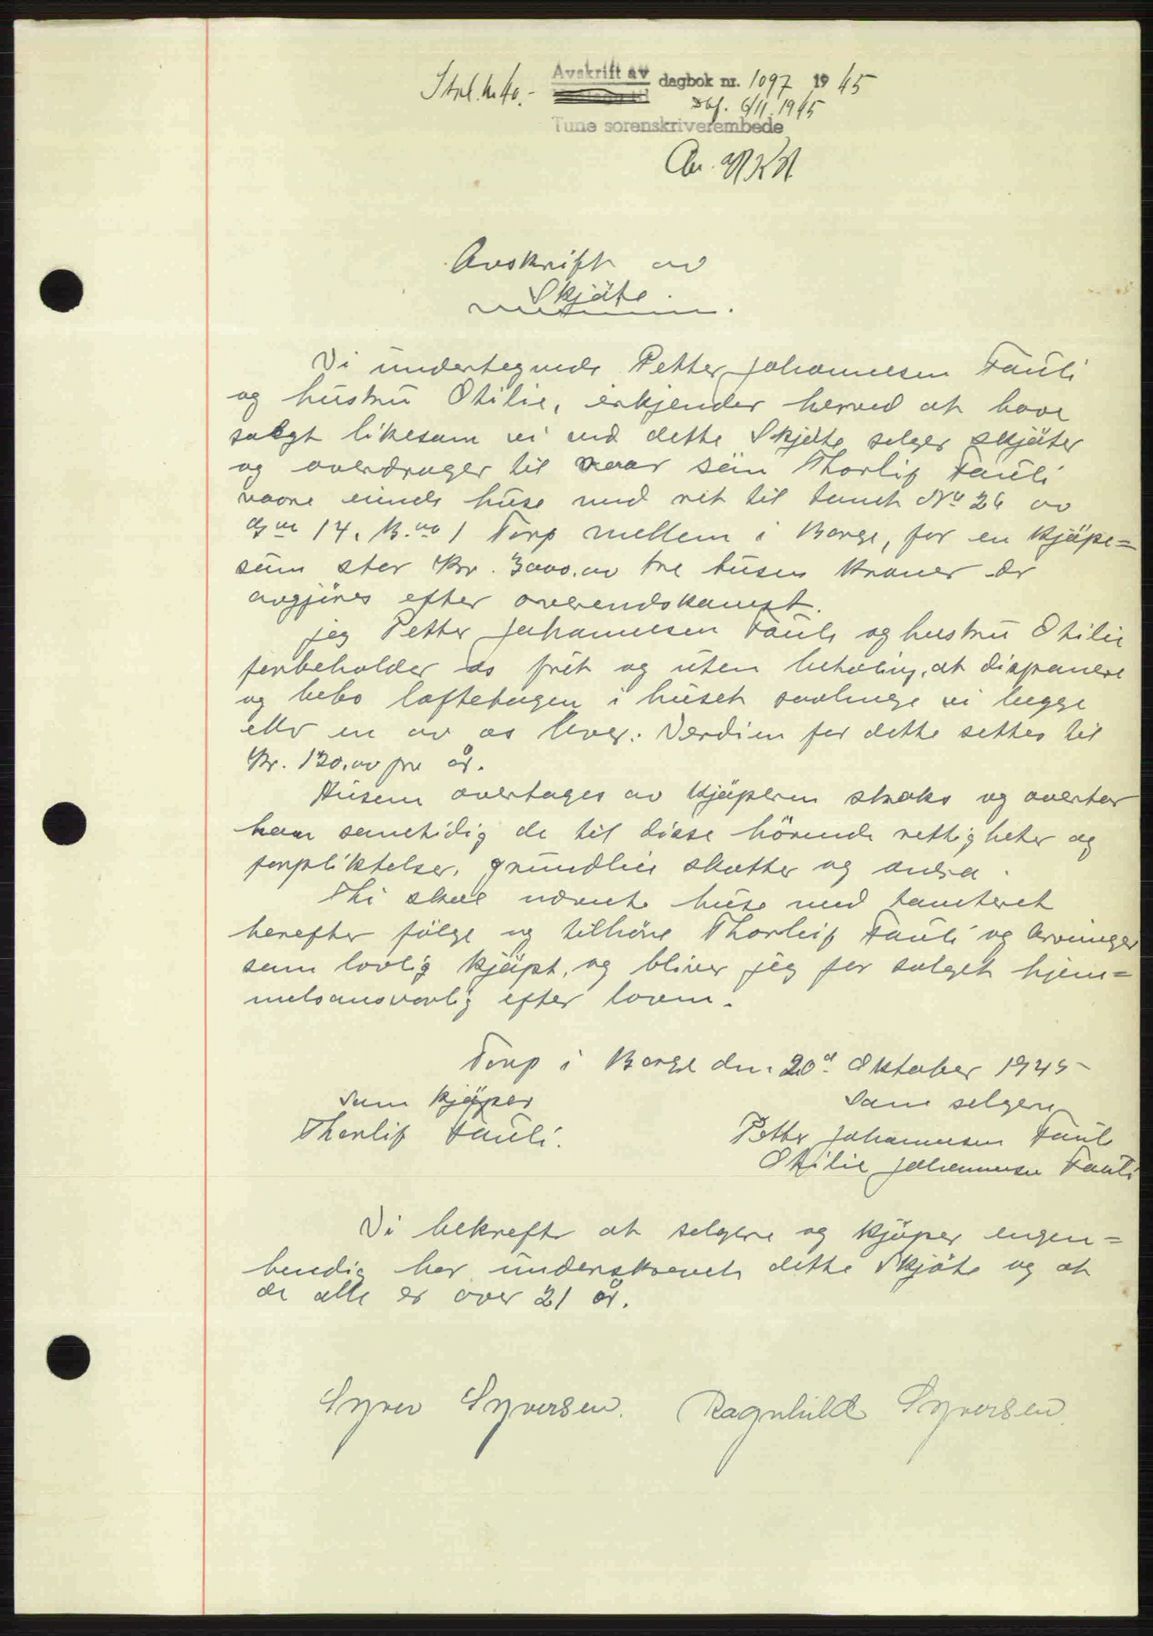 Stpl. kr. 40.-
Avskrift av dagbok nr. 1097 1945
dbf. 6/11. 1945
Tune sorenskriverembede
Avskrift av
Skjöte.
Vi undertegnede Petter Johannesen Fauli
og hustru Otilie, erkjender herved at have
solgt likesom vi ved dette Skjöte selger skjöter
og overdrager til vaar sön Thorlif Fauli
vaare eiende huse med ret til tomt No 26 av
Gno 14, B.no 1 Torp mellem i Borge, for en kjöpe=
sum stor Kr. 3000.00 tre tusen kroner der
avgjöres efter overenskomst.
jeg Petter Johannesen Fauli og hustru Otilie
forbeholder os frit og uten betaling, at disponere
og bebo loftetagen i huset saalenge vi begge
eller en av os lever. Verdien for dette settes til
Kr. 120.00 pr år.
Husene overtages av kjöperen straks og overtar
han samtidig de til disse hörende rettigheter og
forpliktelser, grundleie skatter og andra.
Thi skal nevnte huse med tomteret
herefter fölge og tilhöre Thorleif Fauli og arvinger
som lovlig kjöpt, og bliver jeg for salget hjem=
melsansvarlig efter loven.
Torp i Borge den 20d Oktober 1945
Som kjöper Som selgere
Thorlif Fauli. Petter Johannesen Fauli
Otilie Johannesen Fauli
Vi bekrefter at selgere og kjöper engen=
hendig har underskrevet dette Skjöte og at
de alle er over 21 år.
Syver Syversen. Ragnhild Syversen.